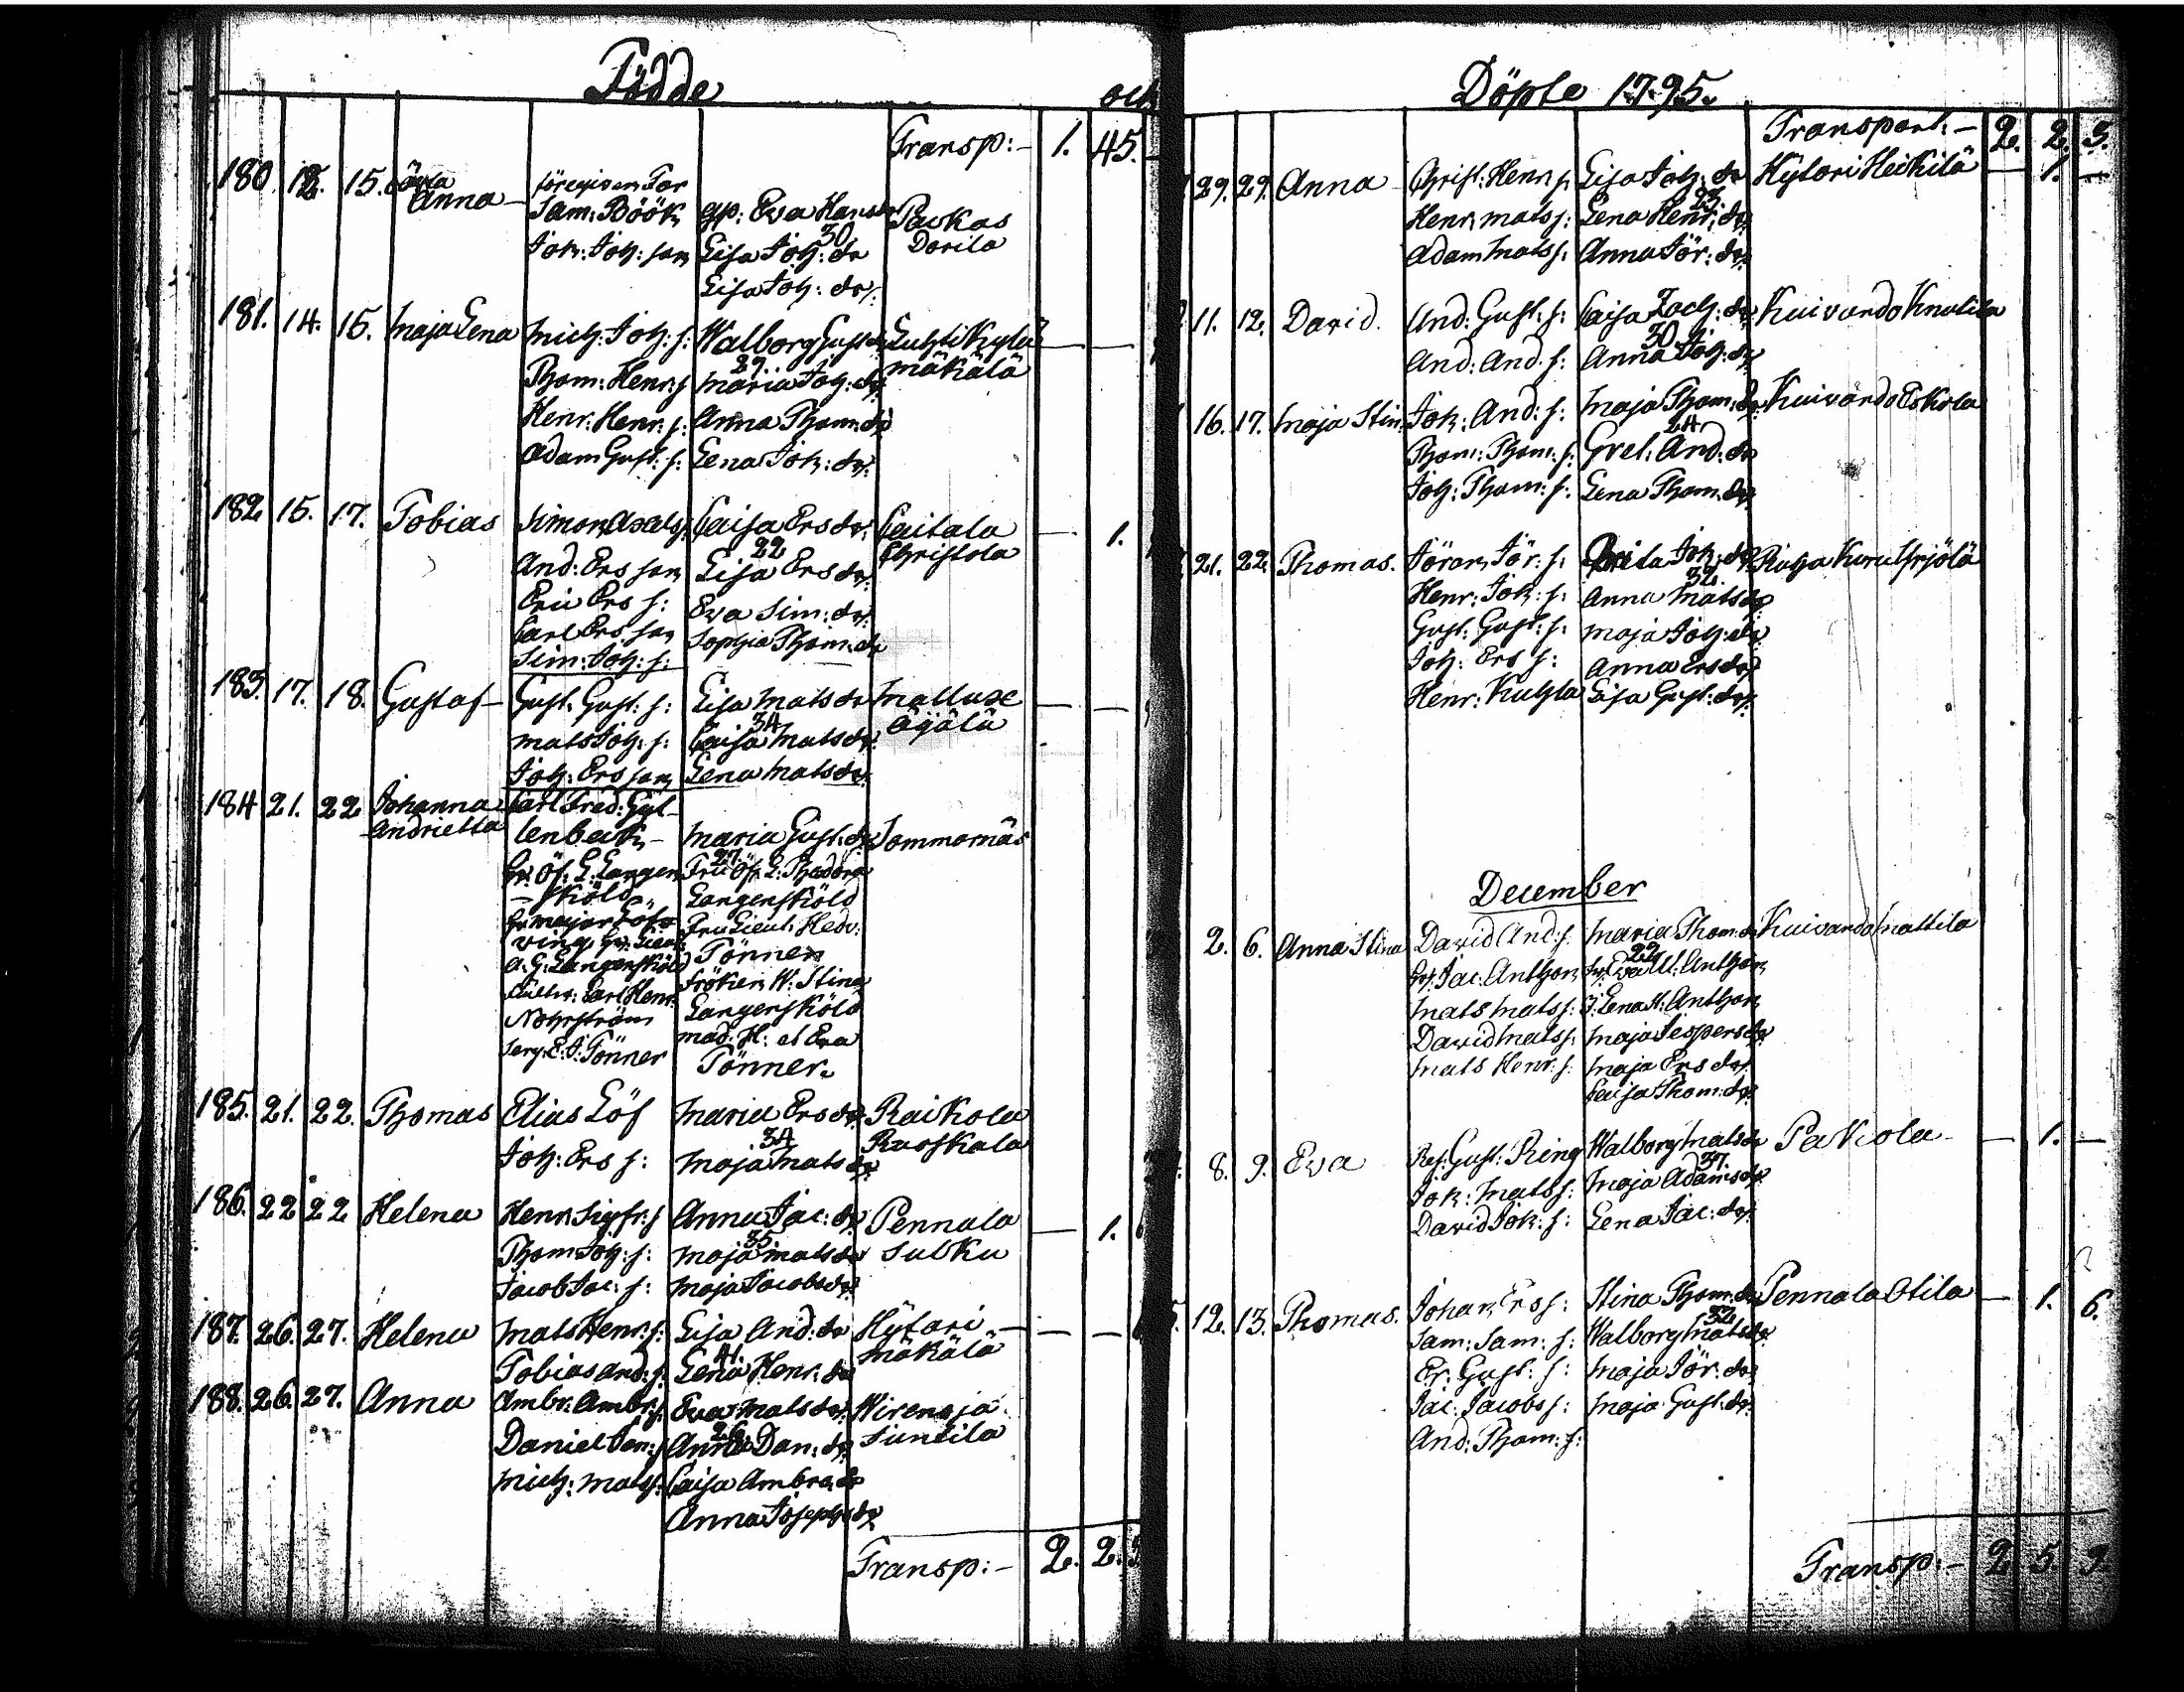 Födde och
Transp:- 1. 45.
180 12. 15. oäkta föregifven Far
Anna Sam: Böök qp: Eva Hansdr Parkas
Joh: Joh: son Lisa Joh: dr 30 Dorila
Lisa Joh: dr:
181. 14. 15. Maja Lena Mich: Joh: s: Walborg Gust dr Luhtikylä
Thom: Henr: s 29. Maria Joh: dr Mäkälä
Henr: Henr: s: Anna Thom: dr
Adam Gust: s: Lena Joh: dr:
182 15. 17. Tobias Simon Axels s: Caisa Ers dr: Caitala 1.
And: Ers son 22 Lisa Ers dr: Christola
Eric Ers s: Eva Sim: dr:
Carl Ers son Sophia Thom: dr
Sim: Joh: s:
183. 17. 18. Gustaf Gust: Gust: s: Lisa Mats dr Mallusc
Mats Joh: s: 34 Caisa Mats dr: Äijälä
Joh: Ers son Lena Mats dr:
184 21. 22 Johanna Carl Fred: Gyl-
Andrietta lenbeck Maria Gust: dr Sommarnäs
Hr: Öf: L: Langen 27. Fru Öf: L: Theodora
sköld Langensköld
Hr Major Löf Fru Lieut: Hedv:
ving Hr: Lieut: Tönner
A: G: Langensköld Fröken W: Stina
Carl Henr: Langensköld
Nohrström mad: H: et Eva
Serg: E: J: Tönner Tönner
185. 21. 22. Thomas Elias Löf Maria Ers dr Raikola
Joh: Ers s: 34 Maja Mats dr Ruoskala
186. 22 22 Helena Henr: Sigfr: s Anna Jac: dr Pennala 1.
Thom: Joh: s: 35 Maja Mats dr Sulku
Jacob Jac: s: Maja Jacobs dr
187. 26. 27. Helena Mats Henr: s: Lisa And: dr Hytari
Tobias And: s: 41. Lena Henr: dr Mäkälä
188. 26. 27. Anna Ambr: Ambr: s Eva Mats dr: Wirenoja
Daniel 26. Anna Dan: dr Suneila
Mich: Mats s: Caisa Ambr: dr
Anna Josephs dr
Transp:- 2. 2.
Döpte 1795.
Transport:- 2. 2. 3.
29. 29. Anna Christ: Henr: s: Lisa Joh: dr Hytari Heikilä 1.
Henr: Mats s: 23. Lena Henr: dr
Adam Mats s: Anna Jör: dr
11. 12. David. And: Gust: s: Caisa Zach: dr Kuivando Knutila
And: And: s: 30 Anna Joh: dr
16. 17. Maja Stin: Joh: And: s: Maja Thom: dr Kuivando Eskola
Thom: Thom: s: 24 Gret: And: dr
Joh: Thom: s: Lena Thom: dr
21. 22. Thomas. Jöran Jör: s: Brita Joh: dr
Henr: Joh: s: 32. Anna Mats dr
Gust: Gust: s: Maja Joh: dr
Joh: Ers s: Anna Ers dr
Henr: Kuhla Lisa Gust: dr:
December
2. 6. Anna Stina David And: s: Maria Thom: dr Kuivando Mattila
Jac: Anthon 22 Eva U: Anthon
Mats Mats s: J: Lena H: Anthon
David Mats s: Maja Jespers dr
Mats Henr: s: Maja Ers dr:
Caisa Thom: dr
8. 9. Eva Res: Gust: Ring Walborg Mats dr Pakiola 1.
Joh: Mats s: 37. Maja Adams dr
David Joh: s: Lena Jac: dr:
12. 13. Thomas. Johan Ers s: Stina Thom: dr Pennala Otila 1. 6.
Sam: Sam: s: 32 Walborg Mats dr
Er: Gust: s: Maja Jör: dr
Jac: Jacobs s: Maja Gust: dr
And: Thom: s:
Transp:- 2 5 9